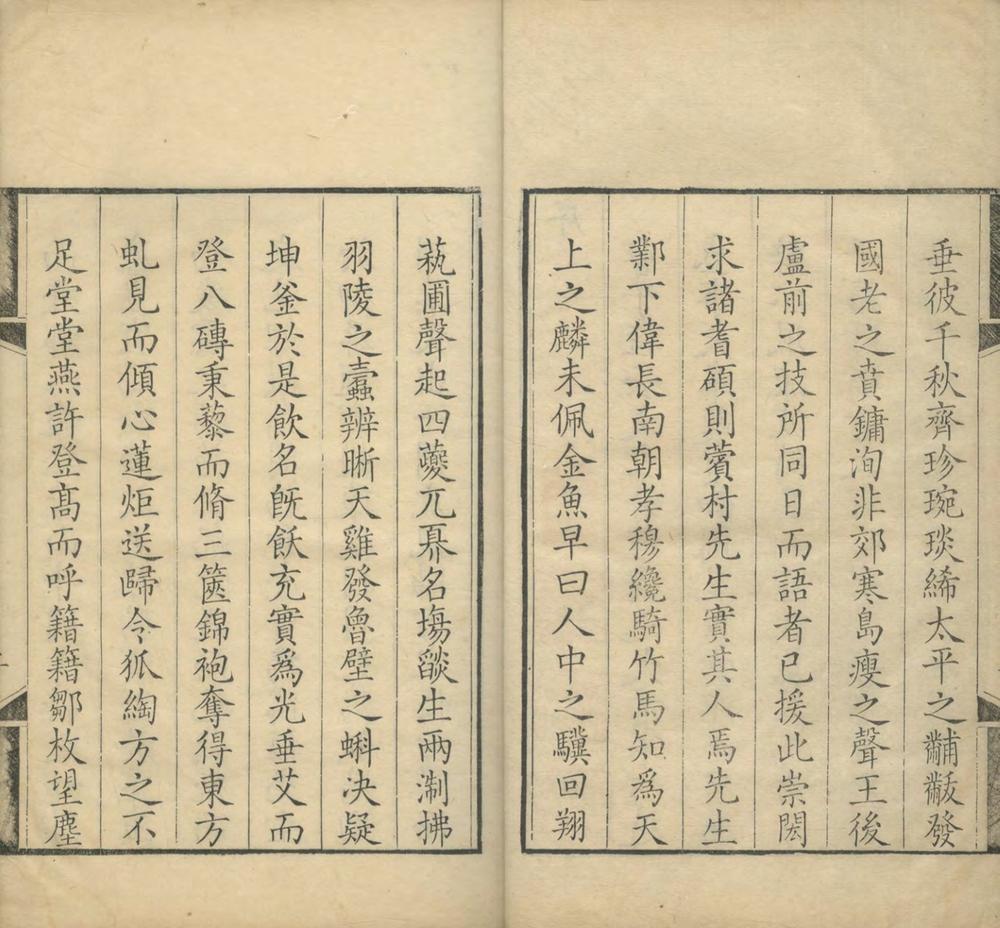 垂彼千秋齊珍琬琰絺太平之黼黻發
國老之賁鏞洵非郊寒島瘦之聲王後
盧前之技所同日而語者已援此崇閎
求諸耆碩則薲村先生實其人焉先生
鄴下偉長南朝孝穆纔騎竹馬知爲天
上之麟未佩金魚早曰人中之驥回翔
蓺圃聲起四夔兀奡名塲燄生兩淛拂
羽陵之蠧辨晣天雞發魯壁之蝌决疑
坤釜於是飲名旣飫充實爲光垂艾而
登八磚秉藜而脩三篋錦袍奪得東方
虬見而傾心蓮炬送歸令狐綯方之不
足堂堂燕許登髙而呼籍籍鄒枚望塵